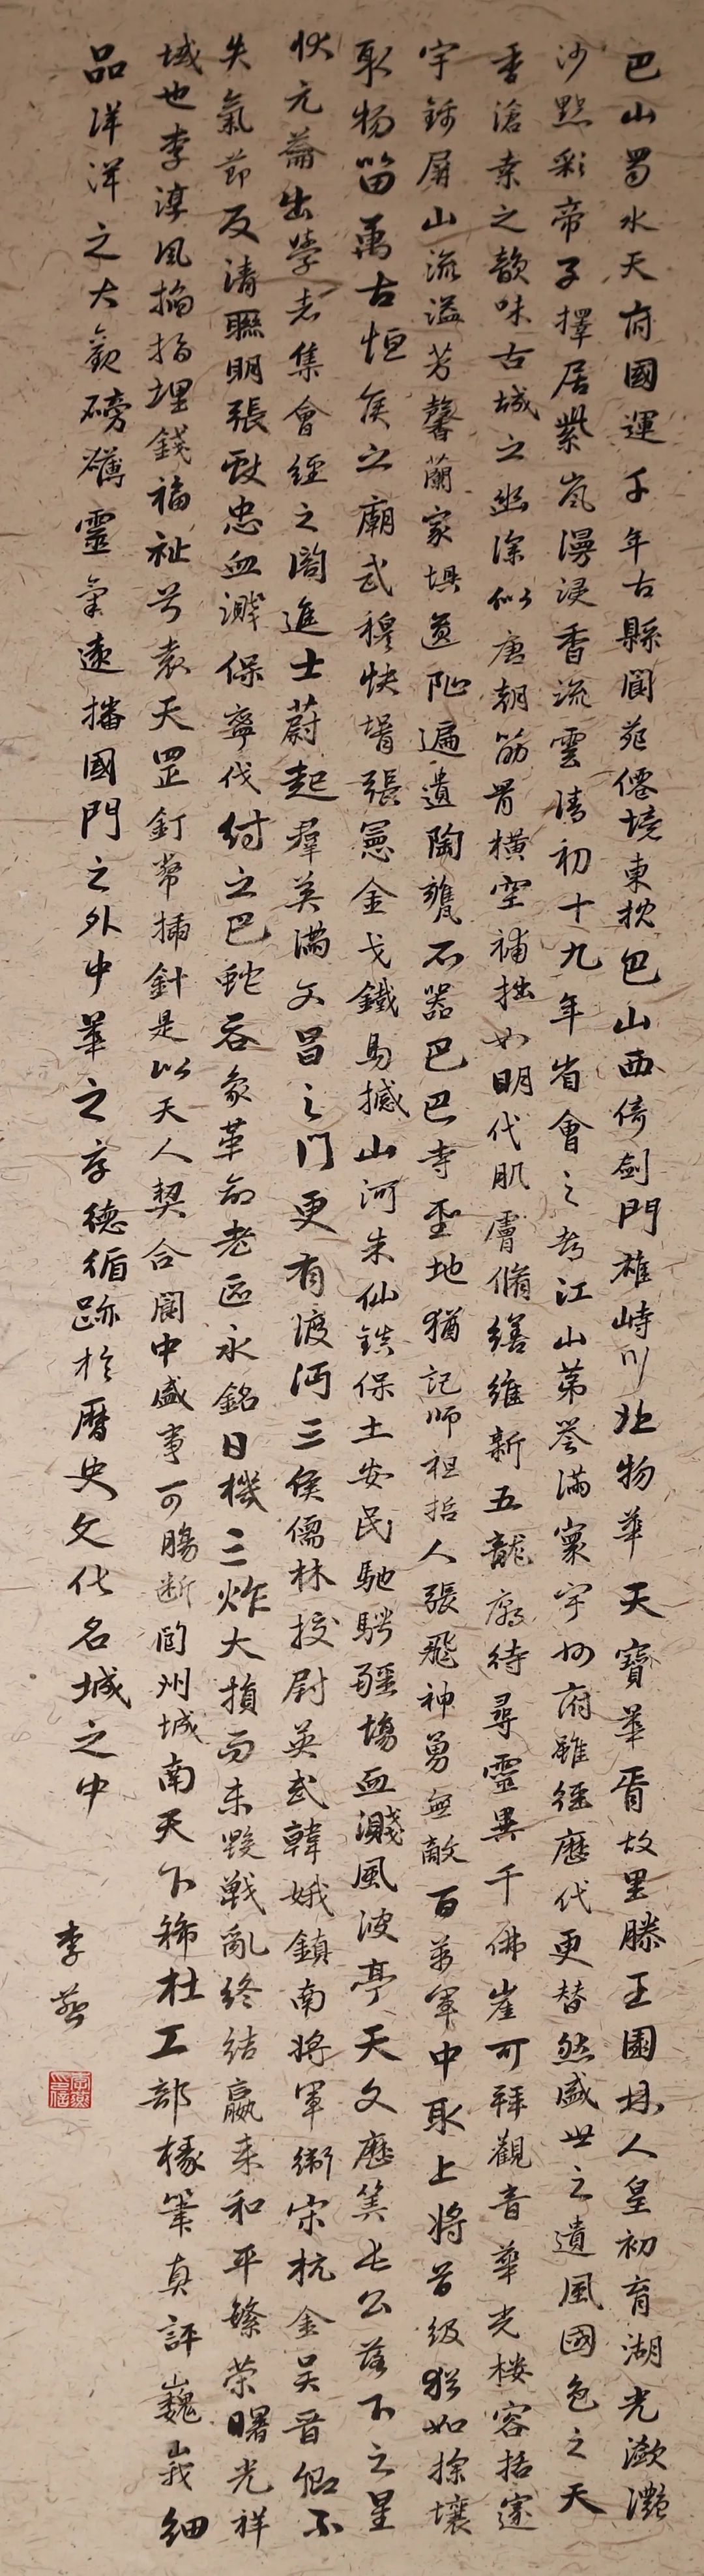 巴山蜀水天府國運千年古縣閬苑僊境東枕巴山西倚劍門雄峙川北物華天寶華胥故里滕王園林人皇初育湖光瀲灩
沙點彩帝子擇居紫嵐漫浸香流雲清初十九年省會之都江山第譽滿寰宇州府雖經歷代更替然盛世之遺風國色之天
香滄桒之韻味古城之幽深似唐朝筋骨橫空補拙如明代肌膚脩繕維新五龍廟待尋靈異千佛崖可拜觀音華光樓容括寰
宇錦屏山流溢芳馨蘭家埧邊阤遍遺陶甕石器巴巴寺聖地猶記師祖哲人張飛神勇無敵百萬軍中取上將首級猶如探壤
取物留萬古恒侯之廟武穆快壻張憲金戈鐵馬撼山河朱仙鎮保土安民馳騁疆場血濺風波亭天文歷筭長公落下之星
狀元薈出學者集會經之閣進士蔚起羣英滿文昌之門更有渡沔三侯儒林校尉英武韓娥鎮南將軍衛宋杭金吴晋卿不
失氣節反清聯明張獻忠血濺保寧伐紂之巴蛇吞象革命老區永銘日機三炸大損而未毀戰亂終結贏來和平繁荣曙光祥
域也李淳風掐指埋錢福祉兮袁天罡釘幣插針是以天人契合閬中盛事可腸断閬州城南天下稀杜工部椽筆真評巍峩細
品洋洋之大觀磅礴靈氣遠播國門之外中華之孝德循跡於曆史文化名城之中
李